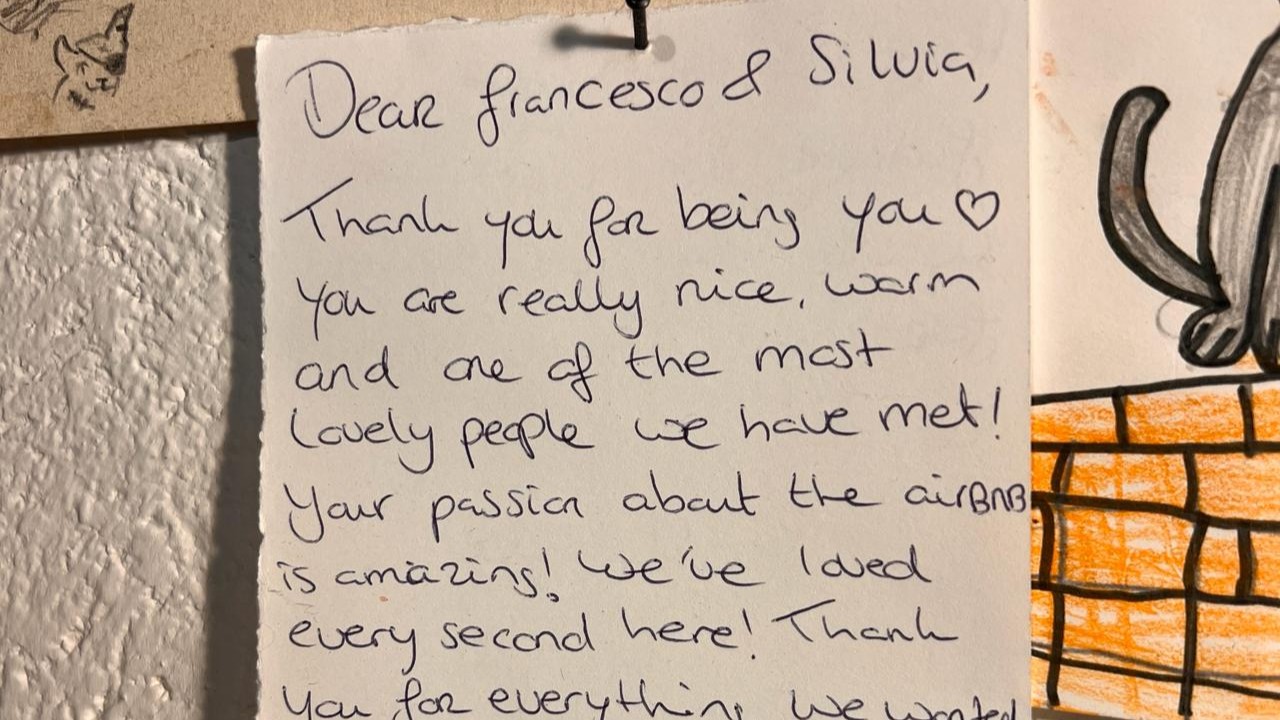 Dear francesco & Silvia,
Thank you for being you ♡
You are really nice, warm
and one of the most
lovely people we have met!
Your passion about the airBNB
is amazing! We've loved
every second here! Thank
you for everything we wanted